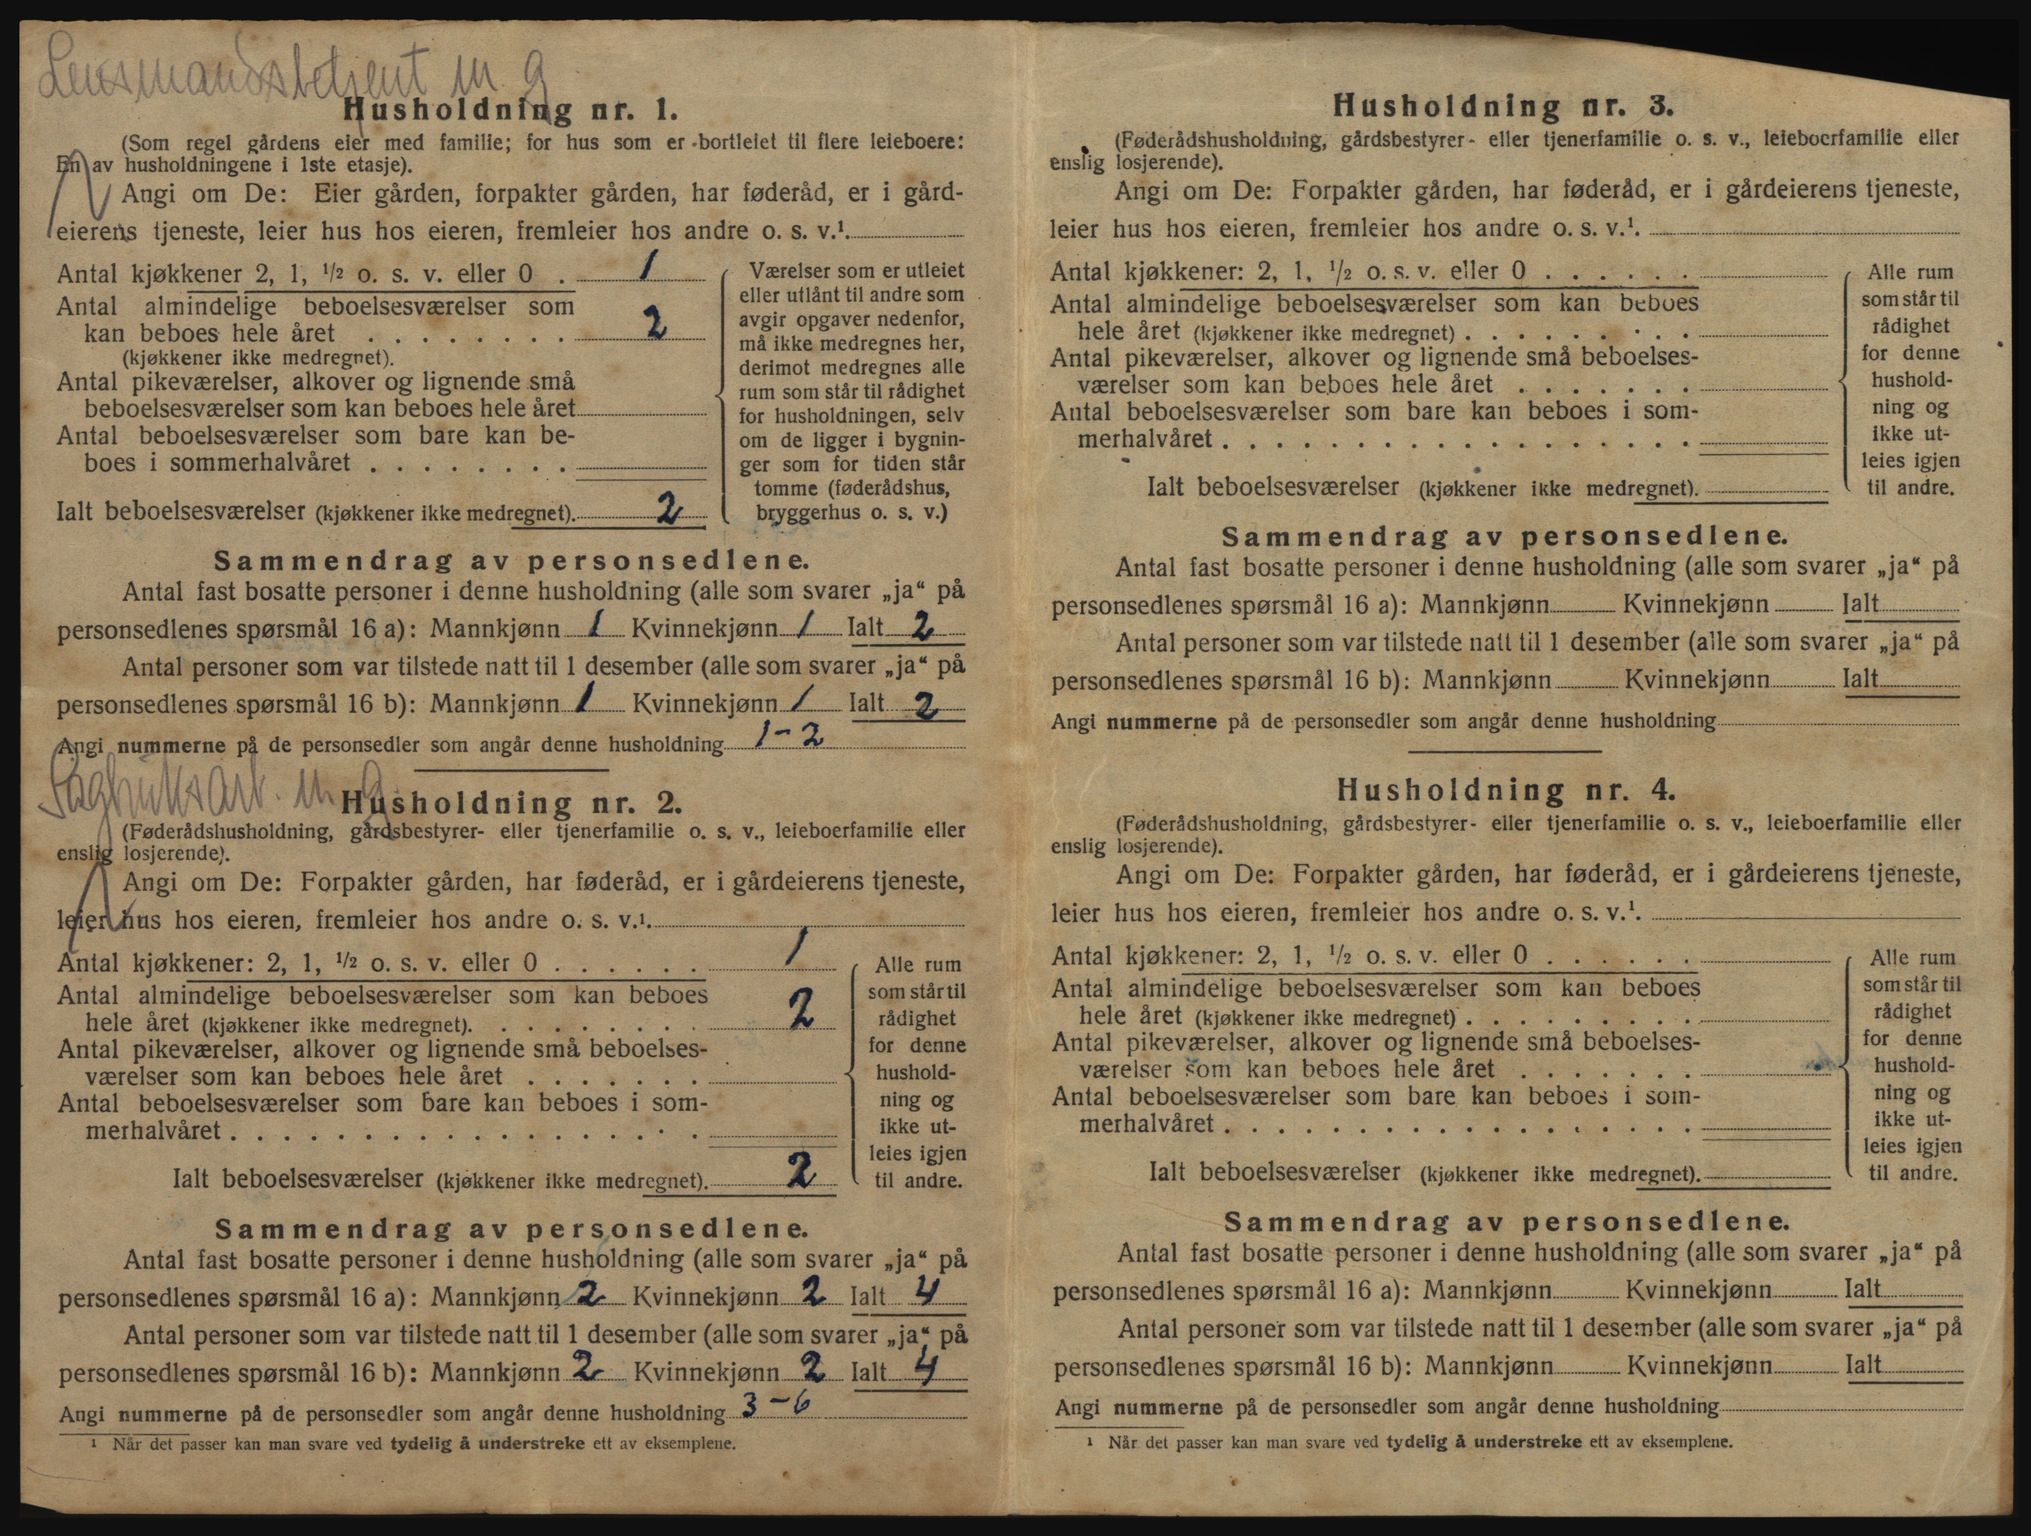 Lensmandsbetjent m g
Husholdning nr. 1.
(Som regel gårdens eier med familie; for hus som er bortleiet til flere leieboere:
En av husholdningene i 1ste etasje).
Angi om De: Eier gården, forpakter gården, har føderåd, er i gård-
eierens tjeneste, leier hus hos eieren, fremleier hos andre o. s. v.¹.
Antal kjøkkener 2, 1, ½ o. s. v. eller 0 . 1
Antal almindelige beboelsesværelser som
kan beboes hele året . . . . . . . . 2
(kjøkkener ikke medregnet).
Antal pikeværelser, alkover og lignende små
beboelsesværelser som kan beboes hele året
Antal beboelsesværelser som bare kan be-
boes i sommerhalvåret . . . . . . . .
Ialt beboelsesværelser (kjøkkener ikke medregnet). 2
Værelser som er utleiet
eller utlånt til andre som
avgir opgaver nedenfor,
må ikke medregnes her,
derimot medregnes alle
rum som står til rådighet
for husholdningen, selv
om de ligger i bygnin-
ger som for tiden står
tomme (føderådshus,
bryggerhus o. s. v.)
Sammendrag av personsedlene.
Antal fast bosatte personer i denne husholdning (alle som svarer „ja“ på
personsedlenes spørsmål 16 a): Mannkjønn 1 Kvinnekjønn 1 Ialt 2
Antal personer som var tilstede natt til 1 desember (alle som svarer „ja“ på
personsedlenes spørsmål 16 b): Mannkjønn 1 Kvinnekjønn 1 Ialt 2
Angi nummerne på de personsedler som angår denne husholdning 1-2
Sagbruksarb. m g
Husholdning nr. 2.
(Føderådshusholdning, gårdsbestyrer- eller tjenerfamilie o. s. v., leieboerfamilie eller
enslig losjerende).
Angi om De: Forpakter gården, har føderåd, er i gårdeierens tjeneste,
leier hus hos eieren, fremleier hos andre o. s. v.¹.
Antal kjøkkener: 2, 1, ½ o. s. v. eller 0 . . . . . . 1
Antal almindelige beboelsesværelser som kan beboes
hele året (kjøkkener ikke medregnet). . . . . . . . . 2
Antal pikeværelser, alkover og lignende små beboelses-
værelser som kan beboes hele året . . . . . . .
Antal beboelsesværelser som bare kan beboes i som-
merhalvåret . . . . . . . . . . . . . . . . . .
Ialt beboelsesværelser (kjøkkener ikke medregnet). 2
Alle rum
som står til
rådighet
for denne
hushold-
ning og
ikke ut-
leies igjen
til andre.
Sammendrag av personsedlene.
Antal fast bosatte personer i denne husholdning (alle som svarer „ja“ på
personsedlenes spørsmål 16 a): Mannkjønn 2 Kvinnekjønn 2 Ialt 4
Antal personer som var tilstede natt til 1 desember (alle som svarer „ja“ på
personsedlenes spørsmål 16 b): Mannkjønn 2 Kvinnekjønn 2 Ialt 4
Angi nummerne på de personsedler som angår denne husholdning 3-6
¹ Når det passer kan man svare ved tydelig å understreke ett av eksemplene.
Husholdning nr. 3.
(Føderådshusholdning, gårdsbestyrer- eller tjenerfamilie o. s. v., leieboerfamilie eller
enslig losjerende).
Angi om De: Forpakter gården, har føderåd, er i gårdeierens tjeneste,
leier hus hos eieren, fremleier hos andre o. s. v.¹.
Antal kjøkkener: 2, 1, ½ o. s. v. eller 0 . . . . . .
Antal almindelige beboelsesværelser som kan beboes
hele året (kjøkkener ikke medregnet) . . . . . . . . .
Antal pikeværelser, alkover og lignende små beboelses-
værelser som kan beboes hele året . . . . . . .
Antal beboelsesværelser som bare kan beboes i som-
merhalvåret . . . . . . . . . . . . . . . . . .
Ialt beboelsesværelser (kjøkkener ikke medregnet).
Alle rum
som står til
rådighet
for denne
hushold-
ning og
ikke ut-
leies igjen
til andre.
Sammendrag av personsedlene.
Antal fast bosatte personer i denne husholdning (alle som svarer „ja“ på
personsedlenes spørsmål 16 a): Mannkjønn Kvinnekjønn Ialt
Antal personer som var tilstede natt til 1 desember (alle som svarer „ja“ på
personsedlenes spørsmål 16 b): Mannkjønn Kvinnekjønn Ialt
Angi nummerne på de personsedler som angår denne husholdning
Husholdning nr. 4.
(Føderådshusholdning, gårdsbestyrer- eller tjenerfamilie o. s. v., leieboerfamilie eller
enslig losjerende).
Angi om De: Forpakter gården, har føderåd, er i gårdeierens tjeneste,
leier hus hos eieren, fremleier hos andre o. s. v.¹.
Antal kjøkkener: 2, 1, ½ o. s. v. eller 0 . . . . . .
Antal almindelige beboelsesværelser som kan beboes
hele året (kjøkkener ikke medregnet) . . . . . . . . .
Antal pikeværelser, alkover og lignende små beboelses-
værelser som kan beboes hele året . . . . . . .
Antal beboelsesværelser som bare kan beboes i som-
merhalvåret . . . . . . . . . . . . . . . . . .
Ialt beboelsesværelser (kjøkkener ikke medregnet).
Alle rum
som står til
rådighet
for denne
hushold-
ning og
ikke ut-
leies igjen
til andre.
Sammendrag av personsedlene.
Antal fast bosatte personer i denne husholdning (alle som svarer „ja“ på
personsedlenes spørsmål 16 a): Mannkjønn Kvinnekjønn Ialt
Antal personer som var tilstede natt til 1 desember (alle som svarer „ja“ på
personsedlenes spørsmål 16 b): Mannkjønn Kvinnekjønn Ialt
Angi nummerne på de personsedler som angår denne husholdning
¹ Når det passer kan man svare ved tydelig å understreke ett av eksemplene.